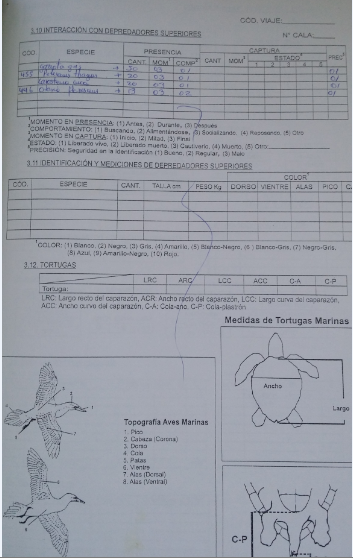 COD. VIAJE:
3.10 INTERACCIÓN CON DEPREDADORES SUPERIORES
N° CALA:
COD. ESPECIE PRESENCIA CAPTURA
CANT MOM¹ COMP² CANT MOM³ ESTADO⁴ PREC⁵
1 2 3 4 5
+ 30 03 01 01
+ 30 03 01 01
+ 03 01 01
+ 03 02 01
¹MOMENTO EN PRESENCIA: (1) Antes, (2) Durante, (3) Después
²COMPORTAMIENTO: (1) Buscando, (2) Alimentándose, (3) Socializando, (4) Reposando, (5) Otro
³MOMENTO EN CAPTURA: (1) Inicio, (2) Mitad, (3) Final
⁴ESTADO: (1) Liberado vivo, (2) Liberado muerto, (3) Cautiverio, (4) Muerto, (5) Otro:
⁵PRECISIÓN: Seguridad en la identificación (1) Bueno, (2) Regular, (3) Malo
3.11 IDENTIFICACIÓN Y MEDICIONES DE DEPREDADORES SUPERIORES
COLOR*
COD. ESPECIE CANT. TALLA cm PESO Kg DORSO VIENTRE ALAS PICO
*COLOR: (1) Blanco, (2) Negro, (3) Gris, (4) Amarillo, (5) Blanco-Negro, (6) Blanco-Gris, (7) Negro-Gris,
(8) Azul, (9) Amarillo-Negro, (10) Rojo.
3.12. TORTUGAS
LRC ARC LCC ACC C-A C-P
Tortuga:
LRC: Largo recto del caparazón, ACR: Ancho recto del caparazón, LCC: Largo curvo del caparazón,
ACC: Ancho curvo del caparazón, C-A: Cola-ano, C-P: Cola-plastrón
Medidas de Tortugas Marinas
Ancho
Largo
Topografía Aves Marinas
1. Pico
2. Cabeza (Corona)
3. Dorso
4. Cola
5. Patas
6. Vientre
7. Alas (Dorsal)
8. Alas (Ventral)
C-P